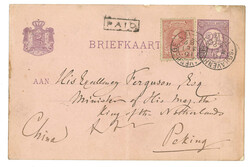 PAID
BRIEFKAART
AAN His Excellency Ferguson, Esq.
Minister of His Maj. the
King of the Netherlands
China Peking